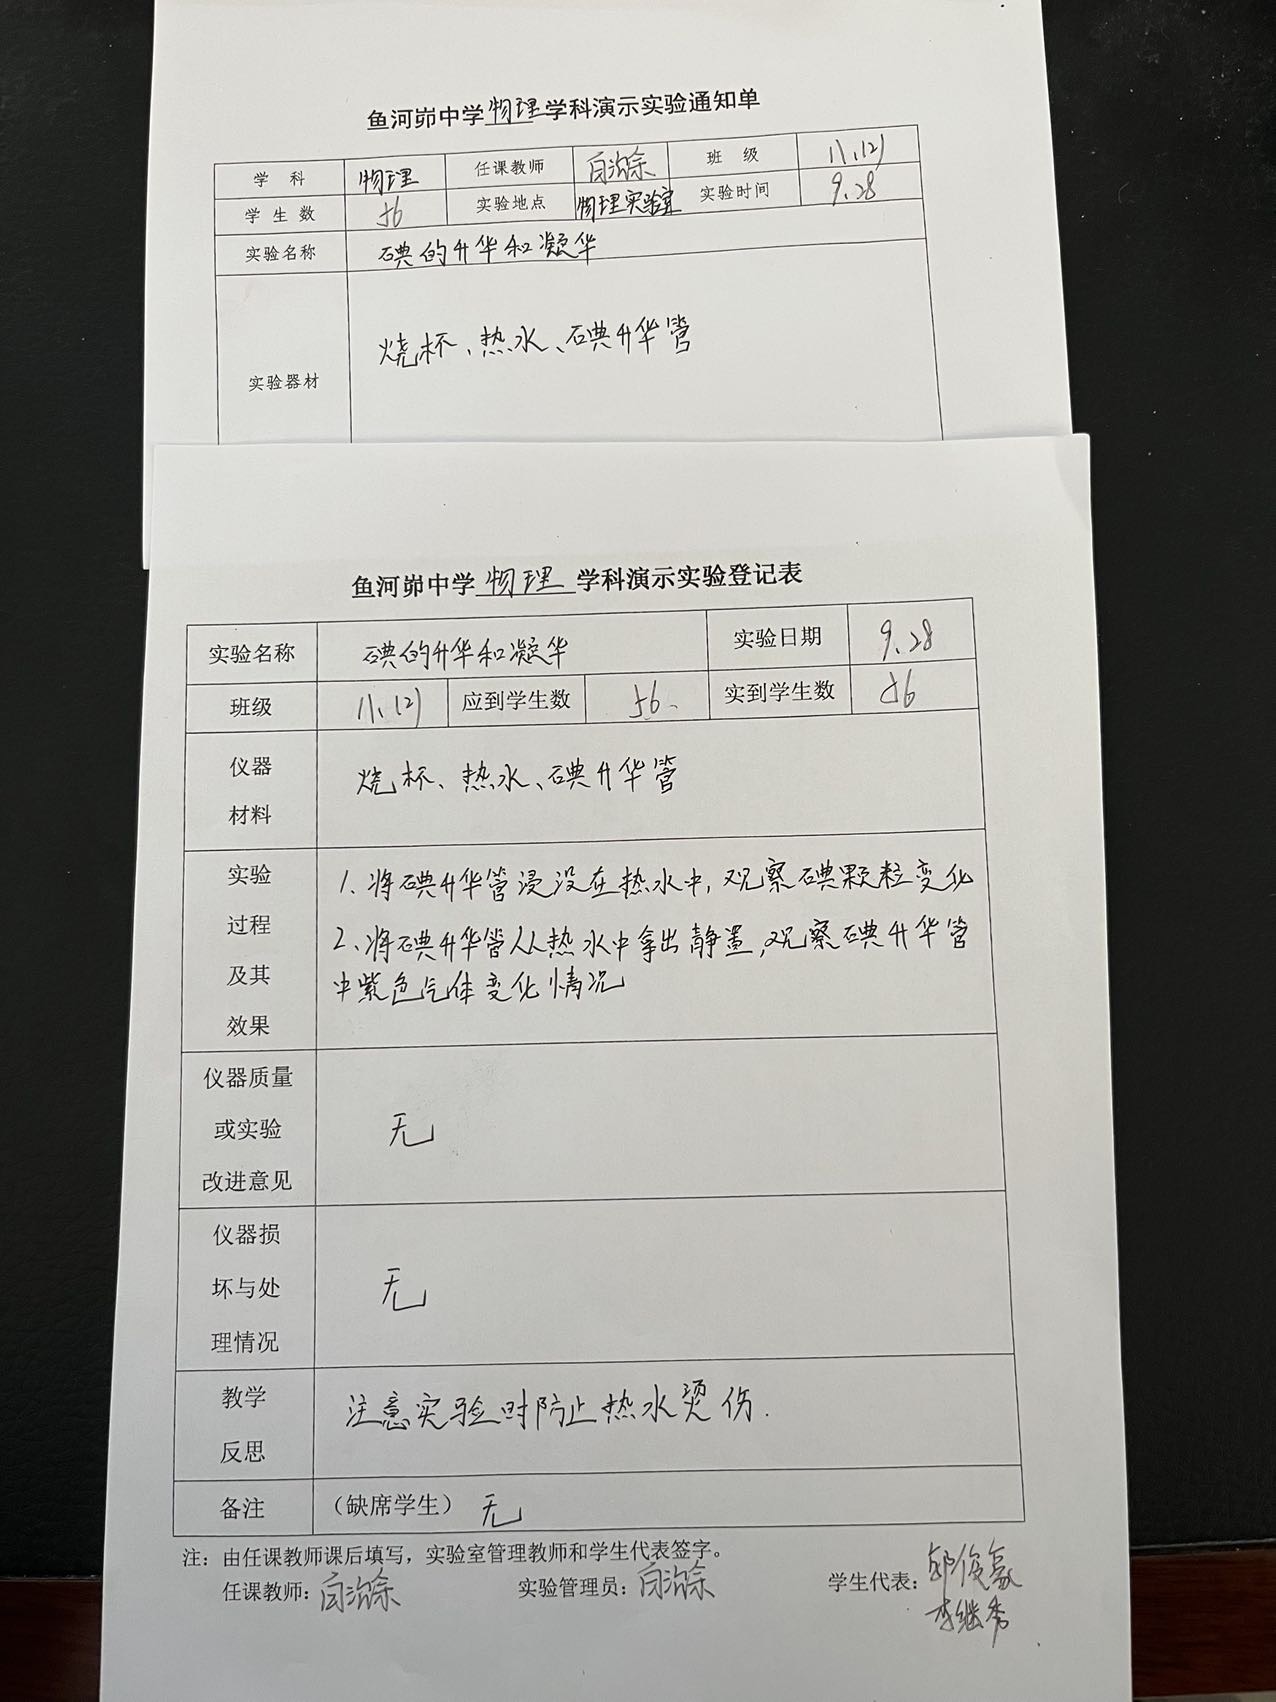 鱼河峁中学物理学科演示实验通知单
学 科 物理 任课教师 班 级 11、12)
学 生 数 56 实验地点 物理实验室 实验时间 9.28
实验名称 碘的升华和凝华
实验器材 烧杯、热水、碘升华管
鱼河峁中学 物理 学科演示实验登记表
实验名称 碘的升华和凝华 实验日期 9.28
班级 11、12) 应到学生数 56、 实到学生数 56
仪器
材料
烧杯、热水、碘升华管
实验
过程
及其
效果
1、将碘升华管浸没在热水中,观察碘颗粒变化
2、将碘升华管从热水中拿出静置,观察碘升华管
中紫色气体变化情况
仪器质量
或实验
改进意见
无
仪器损
坏与处
理情况
无
教学
反思
注意实验时防止热水烫伤.
备注 (缺席学生) 无
注：由任课教师课后填写，实验室管理教师和学生代表签字。
任课教师: 实验管理员: 学生代表: 郭俊豪
李继秀